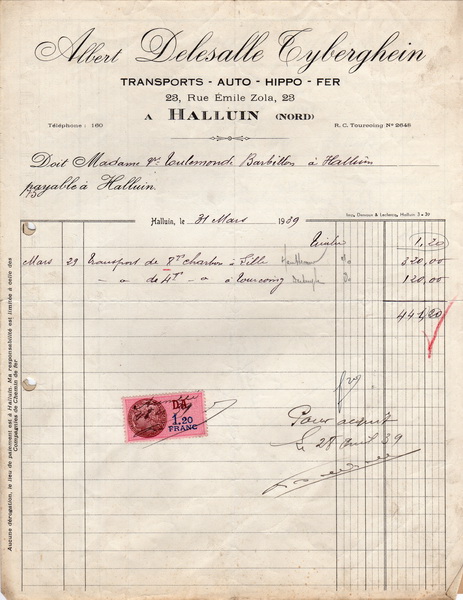 Albert Delesalle Tyberghein
TRANSPORTS - AUTO - HIPPO - FER
23, Rue Émile Zola, 23
A HALLUIN (NORD)
Téléphone : 160
R. C. Tourcoing Nº 2646
Doit Madame Vve Toulemonde Barbillon à Halluin
payable à Halluin.
Imp. Danoux & Leclercq, Halluin 3-39
Halluin, le 31 Mars 1939
Timbre 1,20
Mars 29 transport de 8Ts charbon à Lille 320,00
-o- de 4Ts -o- à Tourcoing 120,00
441,20
D.A.
1.20
FRANC
Pour acquit
Le 28 avril 39
Aucune dérogation, le lieu du paiement est à Halluin. Ma responsabilité est limitée à celle des
Compagnies de Chemin de fer